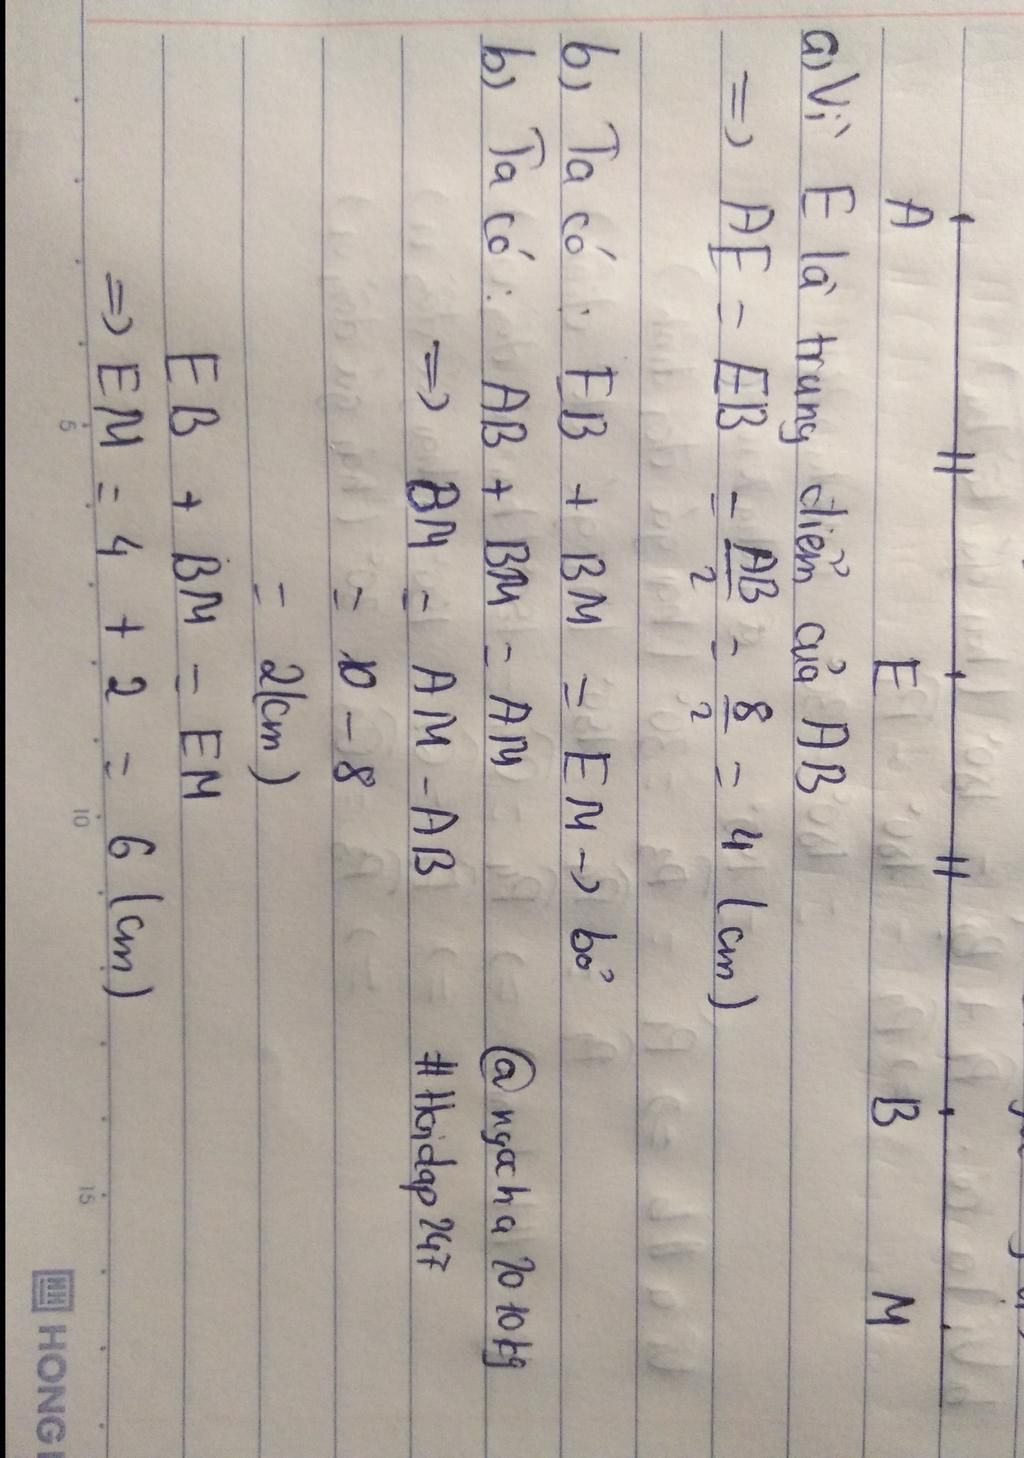 A E B M
a) Vì E là trung điểm của AB
=> AE = EB = AB/2 = 8/2 = 4 (cm)
b) Ta có: EB + BM = EM -> bỏ
b) Ta có: AB + BM = AM
=> BM = AM - AB
= 10 - 8
= 2(cm)
EB + BM = EM
=> EM = 4 + 2 = 6 (cm)
#Hoidap247
5 10 15
HONG